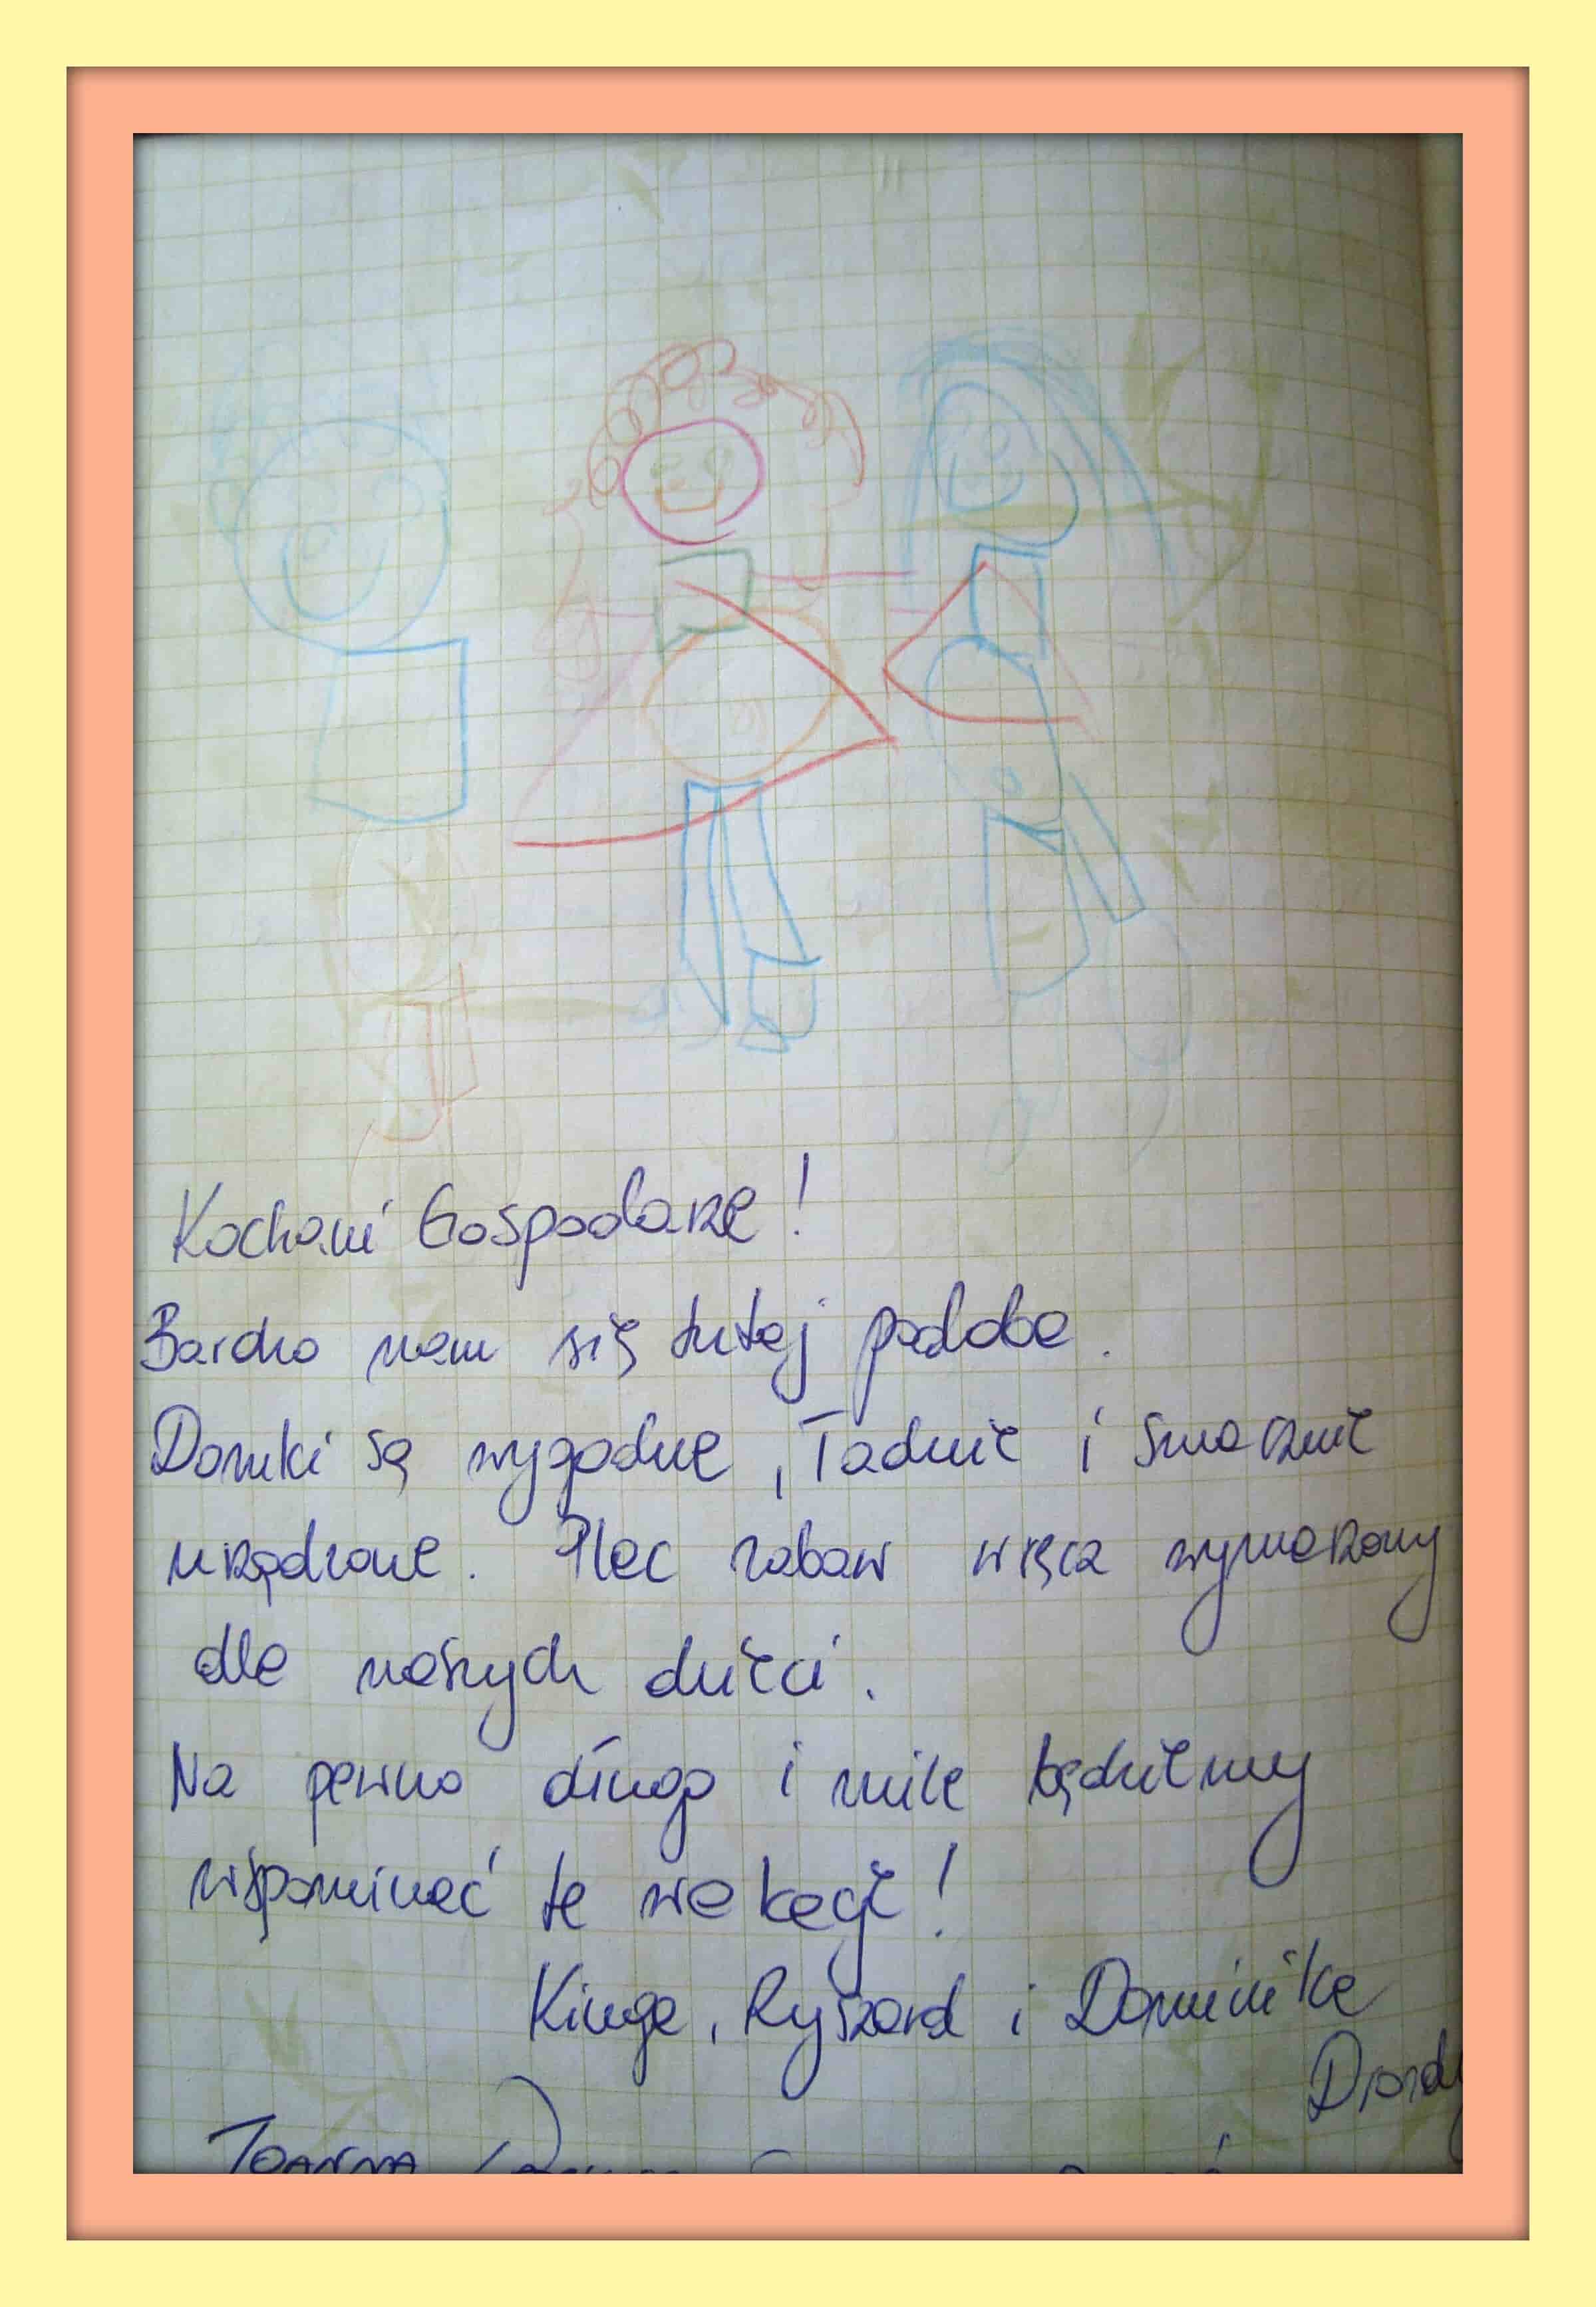 Kochani Gospodarze!
Bardzo nam się tutaj podoba.
Domki są wygodne, ładnie i smacznie
urządzone. Plac zabaw wręcz wymarzony
dla naszych dzieci.
Na pewno długo i mile będziemy
wspominać te wakacje!
Kinga, Ryszard i Dominika
Joanna